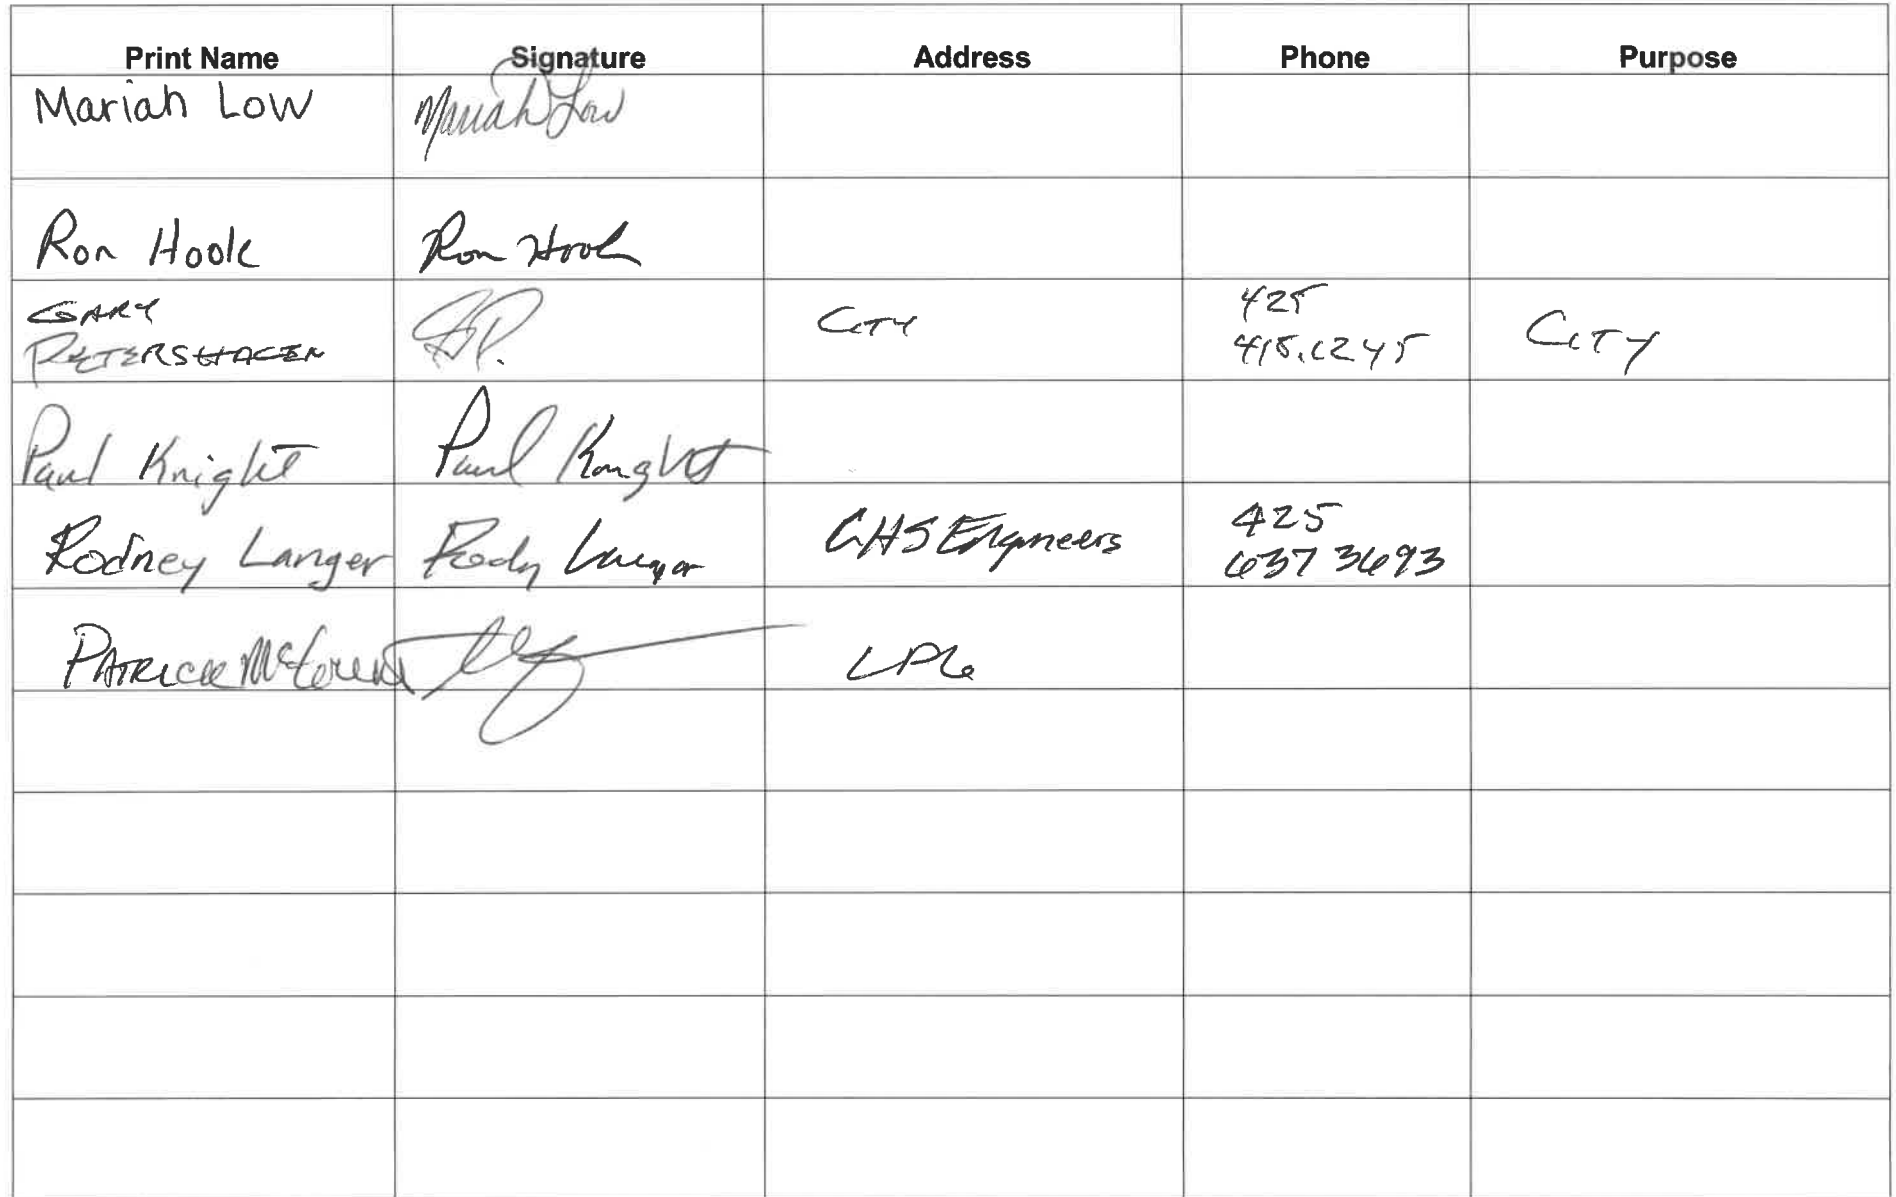 Print Name Signature Address Phone Purpose
Mariah Low Mariah Low
Ron Hook Ron Hook
GARY
PETERSHAGEN G.P. CITY 425 CITY
418.1245
Paul Knight Paul Knight
Rodney Langer Rodney Langer CHS Engineers 425
637 3693
PATRICK